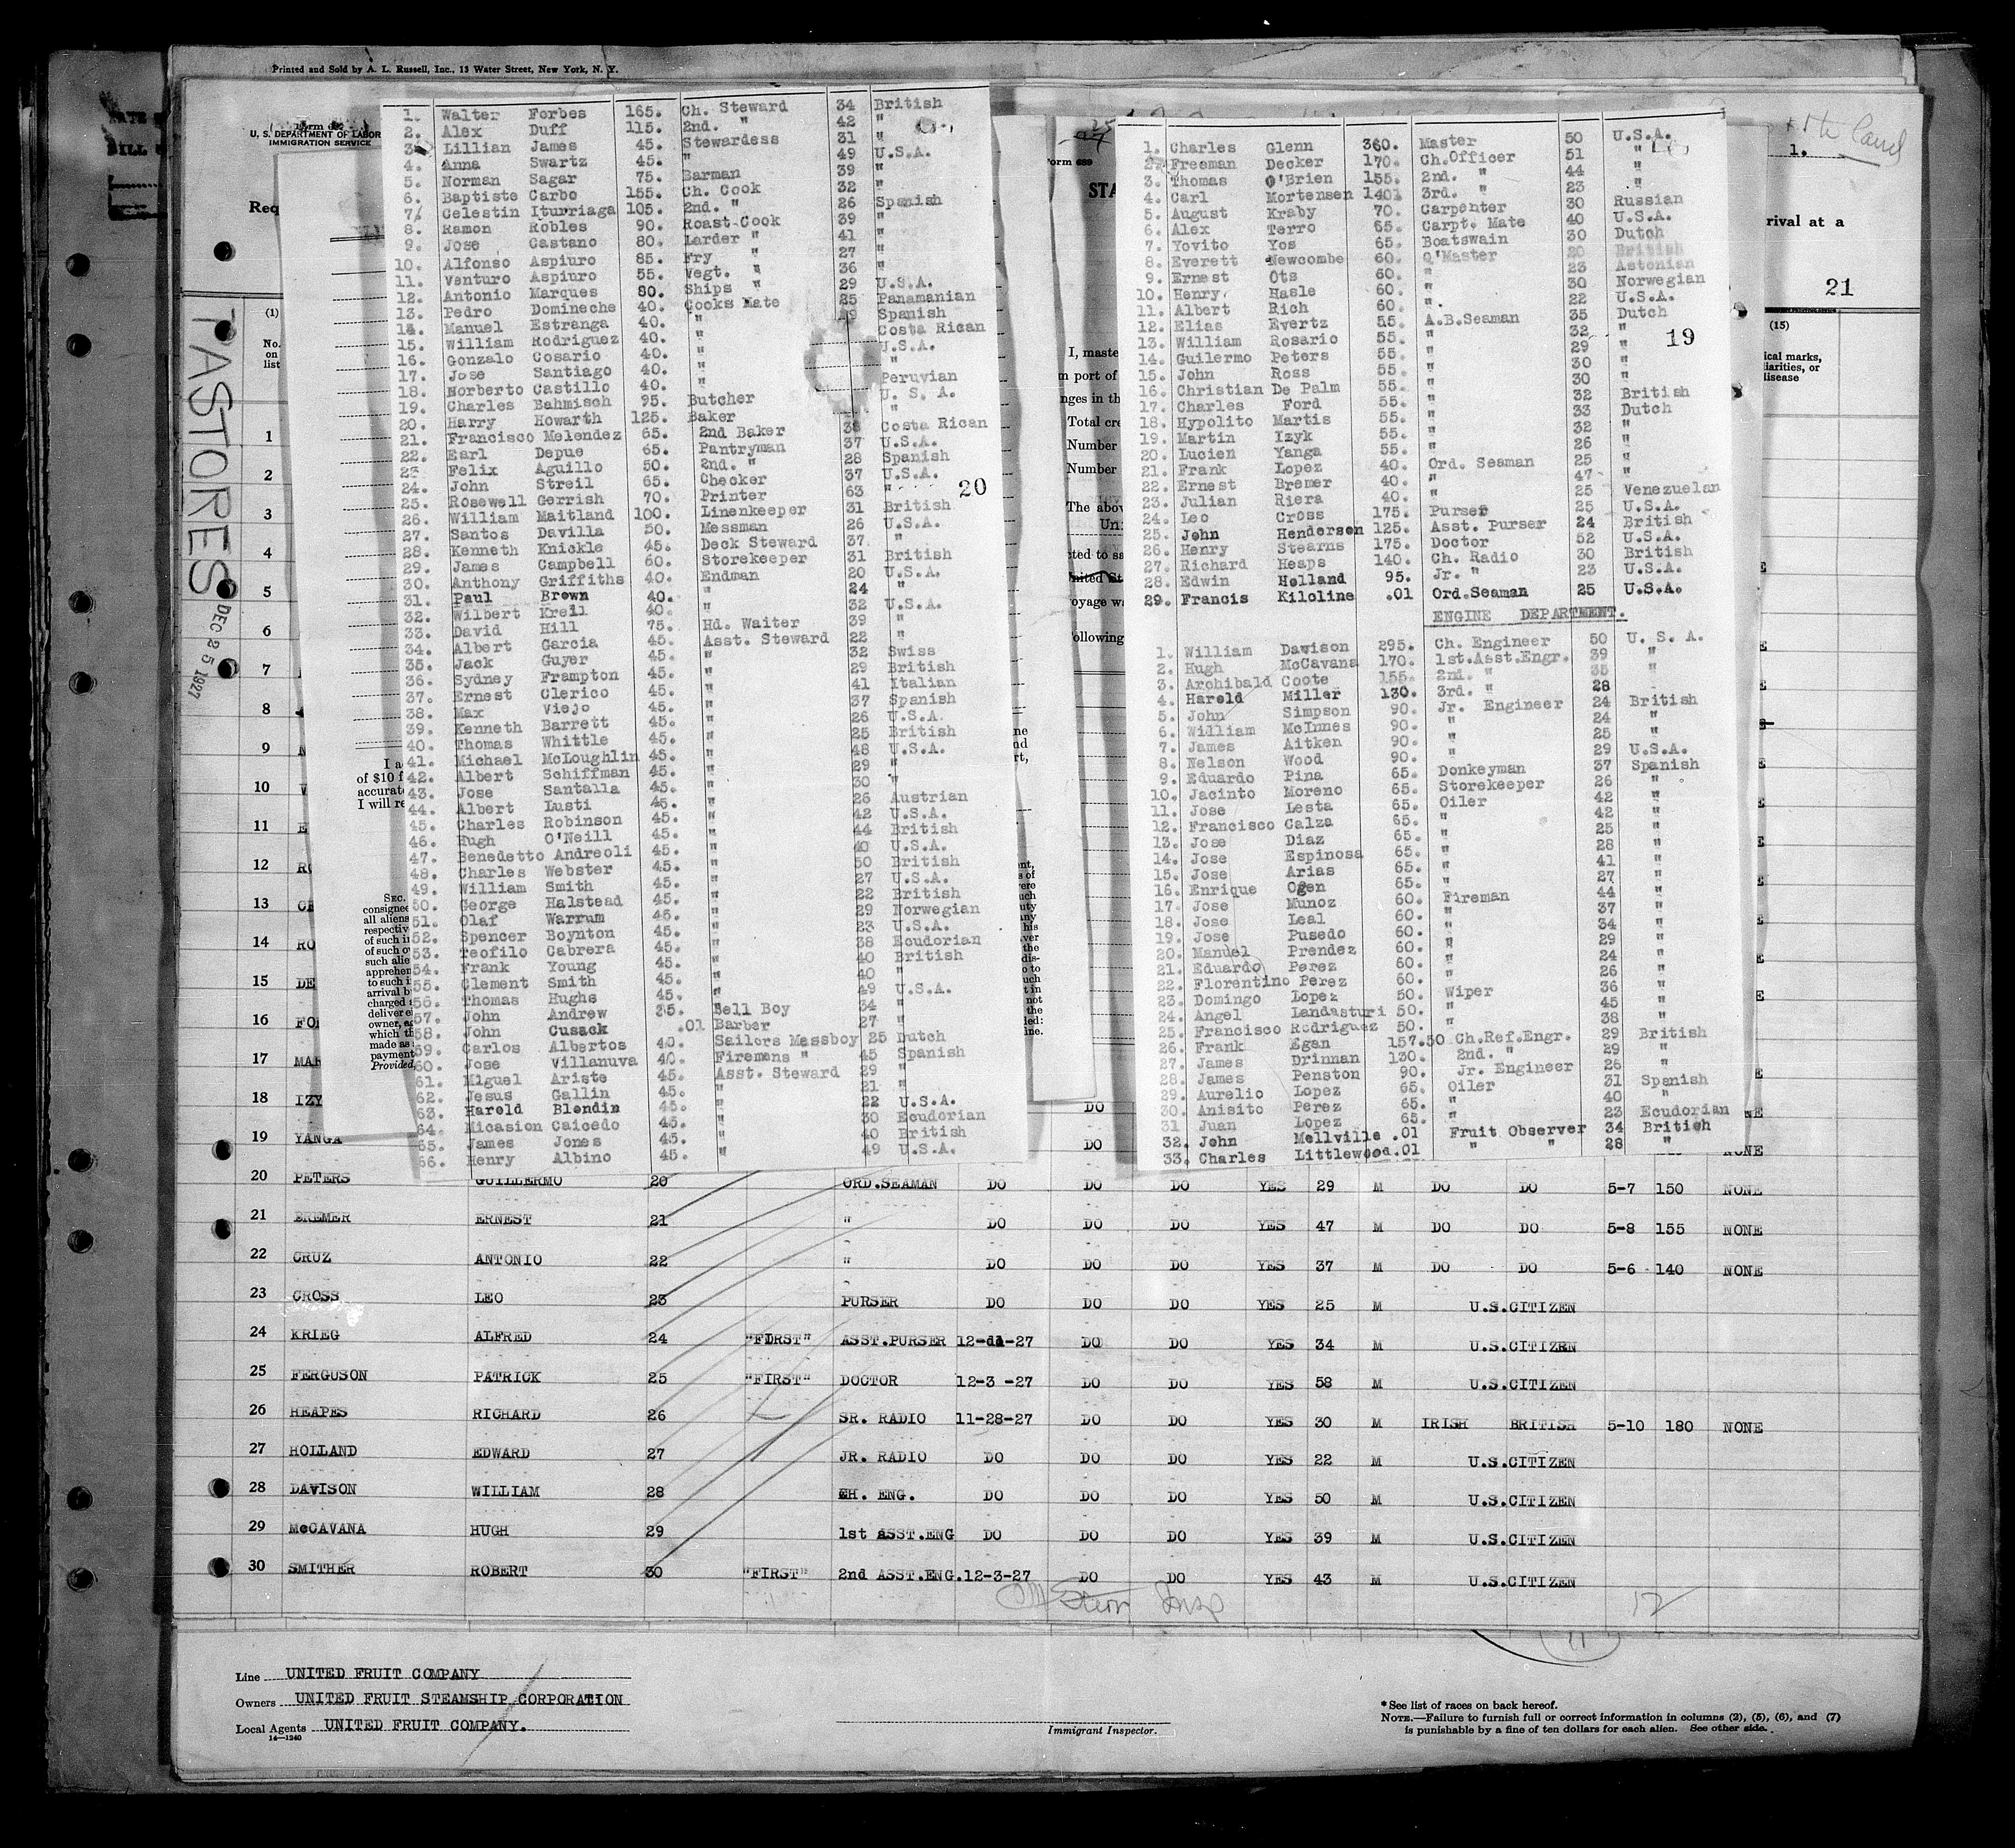 Printed and Sold by A. L. Russell, Inc., 13 Water Street, New York, N. Y.
U. S. DEPARTMENT OF LABOR
IMMIGRATION SERVICE
Req
PASTORES
DEC 25 1927
(1)
No.
on
list
1. Walter Forbes 165. Ch. Steward 34 British
2. Alex Duff 115. 2nd. " 42 "
3. Lillian James 45. Stewardess 31 "
4. Anna Swartz 45. " 49 U.S.A.
5. Norman Sagar 75. Barman 39 "
6. Baptiste Carbo 155. Ch. Cook 32 "
7. Celestin Iturriaga 105. 2nd. " 26 Spanish
8. Ramon Robles 90. Roast Cook 39 "
9. Jose Castano 80. Larder " 41 "
10. Alfonso Aspiuro 85. Fry " 27 "
11. Venturo Aspiuro 55. Vegt. " 36 "
12. Antonio Marques 80. Ships " 29 U.S.A.
13. Pedro Domineche 40. Cooks Mate 25 Panamanian
14. Manuel Estranga 40. " Spanish
15. William Rodriguez 40. " Costa Rican
16. Gonzalo Cosario 40. " U.S.A.
17. Jose Santiago 40. " "
18. Norberto Castillo 40. " Peruvian
19. Charles Bahmisch 95. Butcher U. S. A.
20. Harry Howarth 125. Baker "
21. Francisco Melendez 65. 2nd Baker 38 Costa Rican
22. Earl Depue 65. Pantryman 37 U.S.A.
23. Felix Aguillo 50. 2nd. " 28 Spanish
24. John Streil 65. Checker 37 U.S.A.
25. Rosewell Gerrish 70. Printer 63 "
20
26. William Maitland 100. Linenkeeper 31 British
27. Santos Davilla 50. Messman 26 U.S.A.
28. Kenneth Knickle 45. Deck Steward 37 "
29. James Campbell 60. Storekeeper 31 British
30. Anthony Griffiths 40. Endman 20 U.S.A.
31. Paul Brown 40. " 24 "
32. Wilbert Kreil 40. " 32 U.S.A.
33. David Hill 75. Hd. Waiter 39 "
34. Albert Garcia 45. Asst. Steward 22 "
35. Jack Guyer 45. " 32 Swiss
36. Sydney Frampton 45. " 29 British
37. Ernest Clerico 45. " 41 Italian
38. Max Viejo 45. " 37 Spanish
39. Kenneth Barrett 45. " 26 U.S.A.
40. Thomas Whittle 45. " 25 British
41. Michael McLoughlin 45. " 48 U.S.A.
42. Albert Schiffman 45. " 29 "
43. Jose Santalla 45. " 30 "
44. Albert Lusti 45. " 26 Austrian
45. Charles Robinson 45. " 42 U.S.A.
46. Hugh O'Neill 45. " 44 British
47. Benedetto Andreoli 45. " 40 U.S.A.
48. Charles Webster 45. " 50 British
49. William Smith 45. " 27 U.S.A.
50. George Halstead 45. " 22 British
51. Olaf Warrum 45. " 29 Norwegian
52. Spencer Boynton 45. " 23 U.S.A.
53. Teofilo Cabrera 45. " 38 Ecudorian
54. Frank Young 45. " 40 British
55. Clement Smith 45. " 40 "
56. Thomas Hughs 45. " 49 U.S.A.
57. John Andrew 35. Bell Boy 34 "
58. John Cusack .01 Barber 27 "
59. Carlos Albertos 40. Sailors Messboy 25 Dutch
60. Jose Villanuva 40. Firemens " 45 Spanish
61. Miguel Ariste 45. Asst. Steward 29 "
62. Jesus Gallin 45. " 21 "
63. Harold Blondin 45. " 22 U.S.A.
64. Micasion Caicedo 45. " 30 Ecudorian
65. James Jones 45. " 40 British
66. Henry Albino 45. " 49 U.S.A.
1. Charles Glenn 360. Master 50 U.S.A.
2. Freeman Decker 170. Ch.Officer 51 "
3. Thomas O'Brien 155. 2nd. " 44 "
4. Carl Mortensen 140. 3rd. " 23 "
5. August Kraby 70. Carpenter 30 Russian
6. Alex Terro 65. Carpt. Mate 40 U.S.A.
7. Yovito Yos 65. Boatswain 30 Dutch
8. Everett Newcombe 60. Q'Master 20 British
9. Ernest Ots 60. " 23 Astonian
10. Henry Hasle 60. " 30 Norwegian
11. Albert Rich 60. " 22 U.S.A.
12. Elias Evertz 55. A.B.Seaman 35 Dutch
13. William Rosario 55. " 32 "
19
14. Guilermo Peters 55. " 29 "
15. John Ross 55. " 30 "
16. Christian De Palm 55. " 30 "
17. Charles Ford 55. " 32 British
18. Hypolito Martis 55. " 33 Dutch
19. Martin Izyk 55. " 32 "
20. Lucien Yanga 55. " 26 "
21. Frank Lopez 40. Ord. Seaman 25 "
22. Ernest Bremer 40. " 47 "
23. Julian Riera 40. " 25 Venezuelan
24. Leo Cross 175. Purser 25 U.S.A.
25. John Henderson 125. Asst. Purser 24 British
26. Henry Stearns 175. Doctor 52 U.S.A.
27. Richard Heaps 140. Ch. Radio 30 British
28. Edwin Holland 95. Jr. " 23 U.S.A.
29. Francis Kilcline .01 Ord.Seaman 25 U.S.A.
ENGINE DEPARTMENT.
1. William Davison 295. Ch. Engineer 50 U. S. A.
2. Hugh McCavana 170. 1st.Asst.Engr. 39 "
3. Archibald Coote 155. 2nd. " 35 "
4. Harold Miller 130. 3rd. " 28
5. John Simpson 90. Jr. Engineer 24 British
6. William McInnes 90. " 24 "
7. James Aitken 90. " 25 "
8. Nelson Wood 90. " 29 U.S.A.
9. Eduardo Pina 65. Donkeyman 37 Spanish
10. Jacinto Moreno 65. Storekeeper 26 "
11. Jose Lesta 65. Oiler 42 "
12. Francisco Calza 65. " 42 "
13. Jose Diaz 65. " 25 "
14. Jose Espinosa 65. " 28 "
15. Jose Arias 65. " 41 "
16. Enrique Ogen 65. " 27 "
17. Jose Munoz 60. Fireman 44 "
18. Jose Leal 60. " 37 "
19. Jose Pusedo 60. " 34 "
20. Manuel Prendez 60. " 29 "
21. Eduardo Perez 60. " 24 "
22. Florentino Perez 60. " 26 "
23. Domingo Lopez 50. Wiper 36 "
24. Angel Landasturi 50. " 45 "
25. Francisco Rodriguez 50. " 38 "
26. Frank Egan 157.50 Ch.Ref.Engr. 29 British
27. James Drinnan 130. 2nd. " 29 "
28. James Penston 90. Jr. Engineer 26 "
29. Aurelio Lopez 65. Oiler 31 Spanish
30. Anisito Perez 65. " 40 "
31 Juan Lopez 65. " 23 Ecudorian
32. John Mellville .01 Fruit Observer 34 British
33. Charles Littlewood .01 " " 28 "
1.
rival at a
21
(15)
ical marks,
iarities, or
disease
I, maste
m port of
nges in th
Total cre
Number
Number
The abov
1
2
3
4
5
6
7
8
9
10
11
12
13
14
15
16
17 MAR
18 IZY
19 YANGA
20 PETERS GUILLERMO 20 ORD.SEAMAN DO DO DO YES 29 M DO DO 5-7 150 NONE
21 BREMER ERNEST 21 " DO DO DO YES 47 M DO DO 5-8 155 NONE
22 CRUZ ANTONIO 22 " DO DO DO YES 37 M DO DO 5-6 140 NONE
23 CROSS LEO 23 PURSER DO DO DO YES 25 M U.S.CITIZEN
24 KRIEG ALFRED 24 "FIRST" ASST.PURSER 12-dd-27 DO DO YES 34 M U.S.CITIZEN
25 FERGUSON PATRICK 25 "FIRST" DOCTOR 12-3 -27 DO DO YES 58 M U.S.CITIZEN
26 HEAPES RICHARD 26 SR. RADIO 11-28-27 DO DO YES 30 M IRISH BRITISH 5-10 180 NONE
27 HOLLAND EDWARD 27 JR. RADIO DO DO DO YES 22 M U.S.CITIZEN
28 DAVISON WILLIAM 28 CH. ENG. DO DO DO YES 50 M U.S.CITIZEN
29 McCAVANA HUGH 29 1st ASST.ENG DO DO DO YES 39 M U.S.CITIZEN
30 SMITHER ROBERT 30 "FIRST" 2nd ASST.ENG. 12-3-27 DO DO YES 43 M U.S.CITIZEN
12
11
Line UNITED FRUIT COMPANY
Owners UNITED FRUIT STEAMSHIP CORPORATION
Local Agents UNITED FRUIT COMPANY.
14—1240
Immigrant Inspector.
*See list of races on back hereof.
NOTE.—Failure to furnish full or correct information in columns (2), (5), (6), and (7)
is punishable by a fine of ten dollars for each alien. See other side.